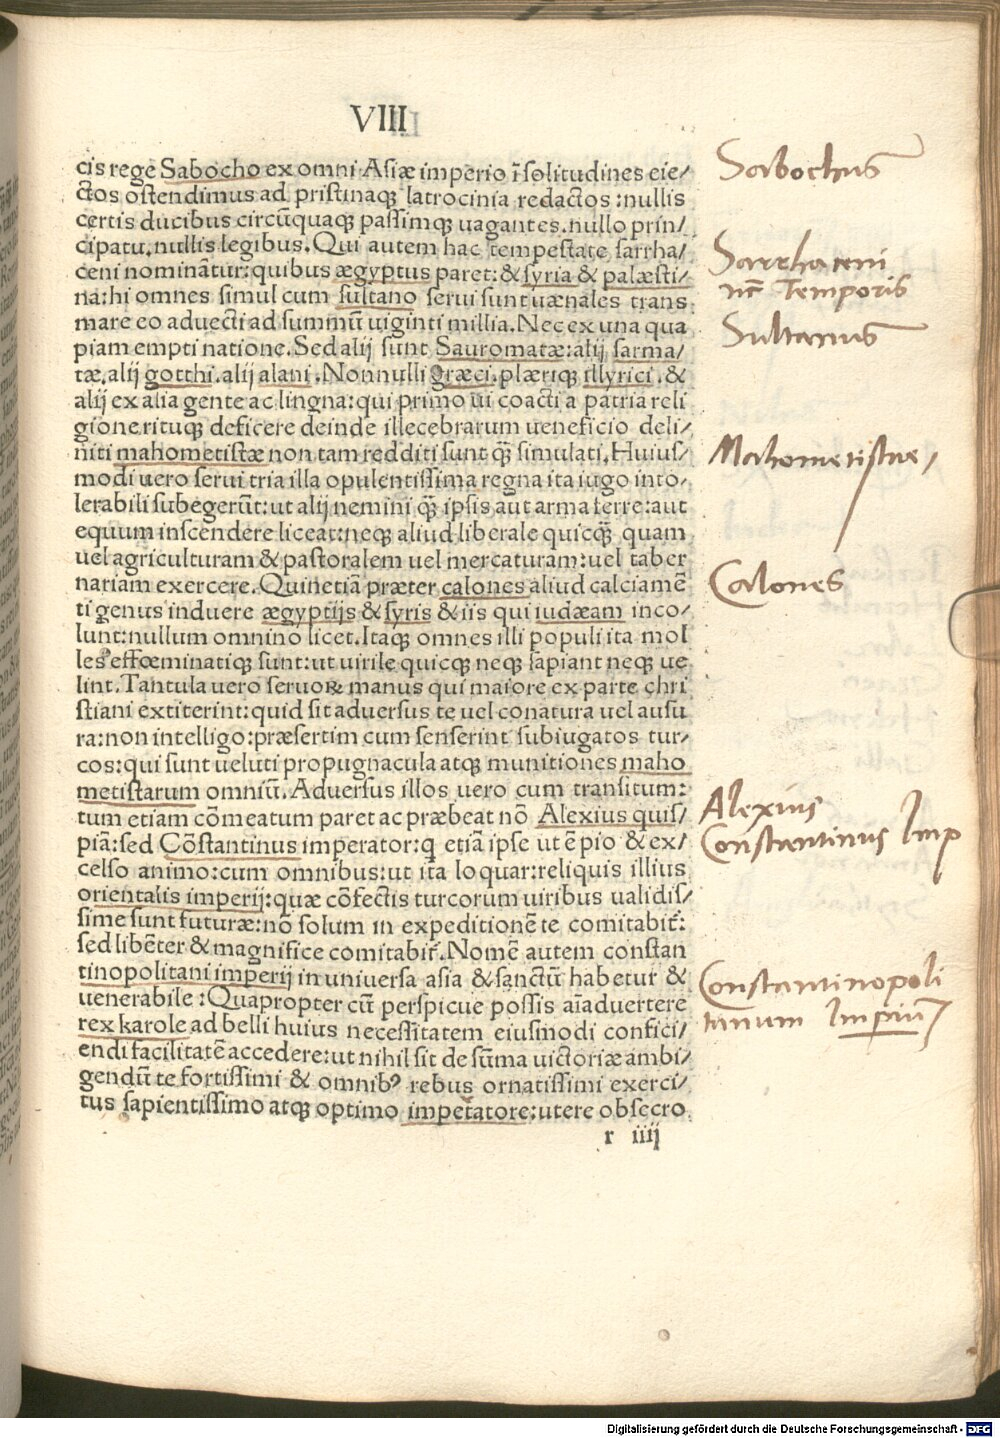 VIII
cis rege Sabocho ex omni Asiæ imperio ī solitudines eie/
ctos ostendimus ad pristinaqꝫ latrocinia redactos : nullis
certis ducibus circūquaqꝫ passimqꝫ uagantes. nullo prin/
cipatu. nullis legibus. Qui autem hac tempestate sarrha/
ceni nominātur: quibus ægyptus paret: & syria & palæsti/
na: hi omnes simul cum sultano serui sunt uænales trans
mare eo aduecti ad summū uiginti millia. Nec ex una qua
piam empti natione. Sed alij sunt Sauromatæ: alij sarma/
tæ. alij gotthi. alij alani. Nonnulli græci. plæriqꝫ illyrici. &
alij ex alia gente ac lingna: qui primo ui coacti a patria reli
gione rituqꝫ deficere deinde illecebrarum ueneficio deli/
niti mahometistæ non tam redditi sunt qꝫ̄ simulati. Huius/
modi uero serui tria illa opulentissima regna ita iugo into/
lerabili subegerūt: ut alij nemini qꝫ̄ ipsis aut arma ferre: aut
equum inscendere liceat: neqꝫ aliud liberale quicqꝫ̄ quam
uel agriculturam & pastoralem uel mercaturam: uel taber
nariam exercere. Quinetiā præter calones aliud calciamē
ti genus induere ægyptijs & syris & iis qui iudæam inco/
lunt: nullum omnino licet. Itaqꝫ omnes illi populi ita mol
les effœminatiqꝫ sunt: ut uirile quicqꝫ neqꝫ sapiant neqꝫ ue
lint. Tantula uero seruoꝝ manus qui maiore ex parte chri
stiani extiterint: quid sit aduersus te uel conatura uel ausu
ra: non intelligo: præsertim cum senserint subiugatos tur/
cos: qui sunt ueluti propugnacula atqꝫ munitiones maho
metistarum omniū. Aduersus illos uero cum transitum:
tum etiam cōmeatum paret ac præbeat nō Alexius quis/
piā: sed Cōstantinus imperator: q etiā ipse ut ē pio & ex/
celso animo: cum omnibus: ut ita loquar: reliquis illius
orientalis imperij: quæ cōfectis turcorum uiribus ualidis/
sime sunt futuræ: nō solum in expeditionē te comitabit᷑:
sed libēter & magnifice comitabit᷑. Nomē autem constan
tinopolitani imperij in uniuersa asia & sanctū habetur &
uenerabile : Quapropter cū perspicue possis aīaduertere
rex karole ad belli huius necessitatem eiusmodi confici/
endi facilitatē accedere: ut nihil sit de sūma uictoriæ ambi/
gendū te fortissimi & omnibꝰ rebus ornatissimi exerci/
tus sapientissimo atqꝫ optimo imperatore: utere obsecro
r iiij
Sabochus
Sarrhaceni
nc̄ Temporis
Sultanus
Mahometistae
Calones
Alexius
Constantinus Imp
Constantinopoli
tanum Impiū
Digitalisierung gefördert durch die Deutsche Forschungsgemeinschaft - DFG